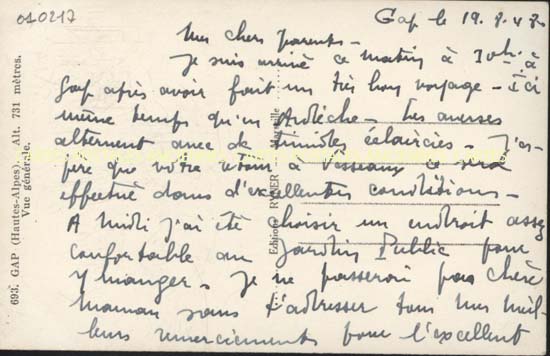 010217
Gap le 19.8.48.
Mes chers parents -
Je suis arrivé ce matin à 10h. à
Gap après avoir fait un très bon voyage - Ici
même temps qu'en Ardèche - Les averses
alternent avec de timides éclaircies - J'es-
père que votre à Vesseaux ce sera
effectué dans d'excellentes conditions -
A midi j'ai été choisir un endroit assez
confortable au Jardin Public pour
y manger - Je ne passerai pas chère
maman sans t'adresser tous mes meil-
leurs remerciements pour l'excellent
693. GAP (Hautes-Alpes). Alt. 731 mètres.
Vue générale.
Editions Marseille